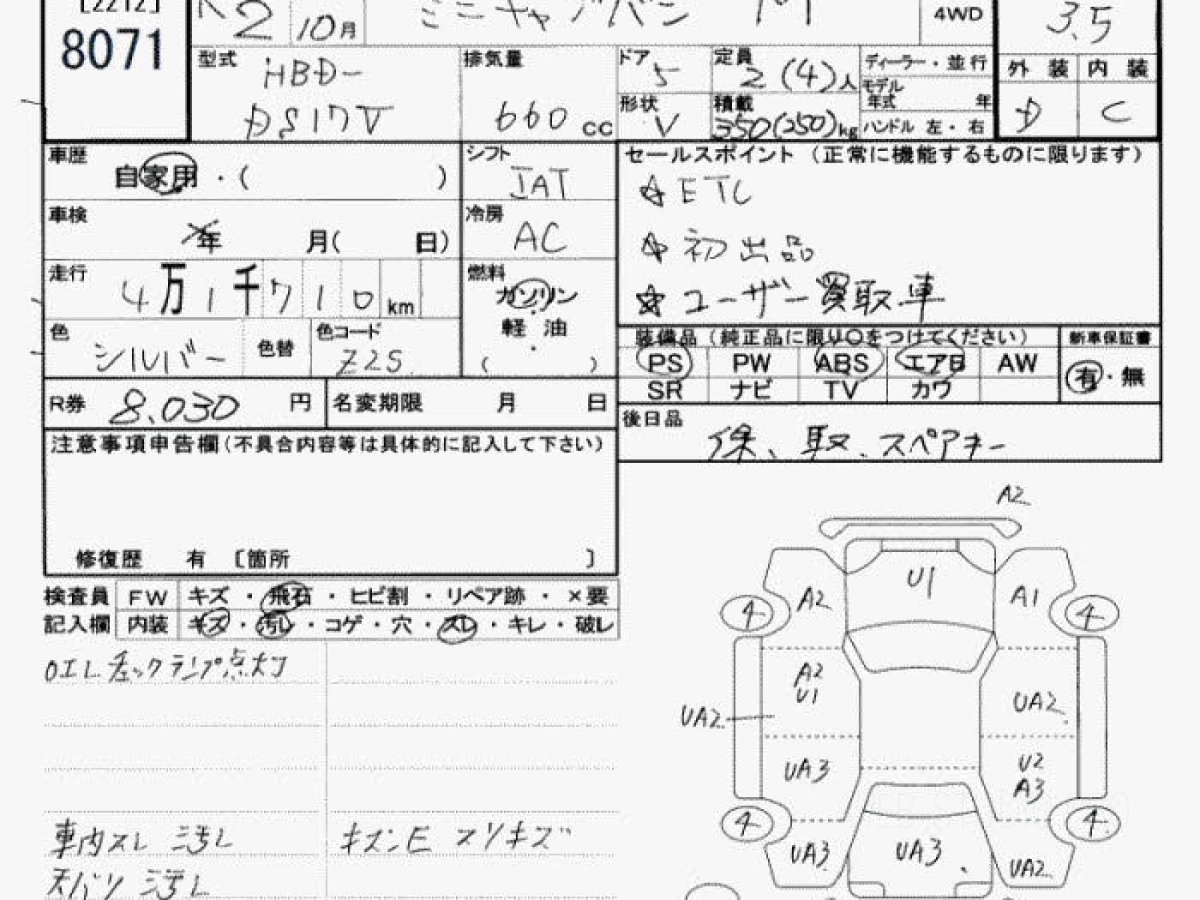 [2212]
8071
R2 10月 ミニキャブバン M 4WD 3.5
型式 HBD-
DS17V
排気量 660 cc
ドア 5 定員 2(4)人
形状 V 積載 350(250)kg
ディーラー・並行
モデル年式 年
ハンドル 左・右
外装 内装
D C
車歴 自家用・( )
シフト IAT
セールスポイント (正常に機能するものに限ります)
☆ETC
☆初出品
☆ユーザー買取車
車検 年 月( 日)
冷房 AC
走行 4万1千710km
燃料 ガソリン
・
軽油
・
( )
色 シルバー 色替 色コード Z2S
装備品 (純正品に限り〇をつけてください) 新車保証書
PS PW ABS エアB AW 有・無
SR ナビ TV カワ
R券 8.030円 名変期限 月 日
後日品 保、取、スペアキー
注意事項申告欄(不具合内容等は具体的に記入して下さい)
修復歴 有 〔箇所 〕
検査員 FW キズ・飛石・ヒビ割・リペア跡・×要
記入欄 内装 キズ・汚レ・コゲ・穴・スレ・キレ・破レ
OIL チェックランプ点灯
車内スレ 汚レ キズンE スリキズ
天バリ 汚レ
A2
U1
4 A2 A1 4
A2
U1
UA2 UA2
UA3 U2
A3
4 4
UA3 UA3 UA2